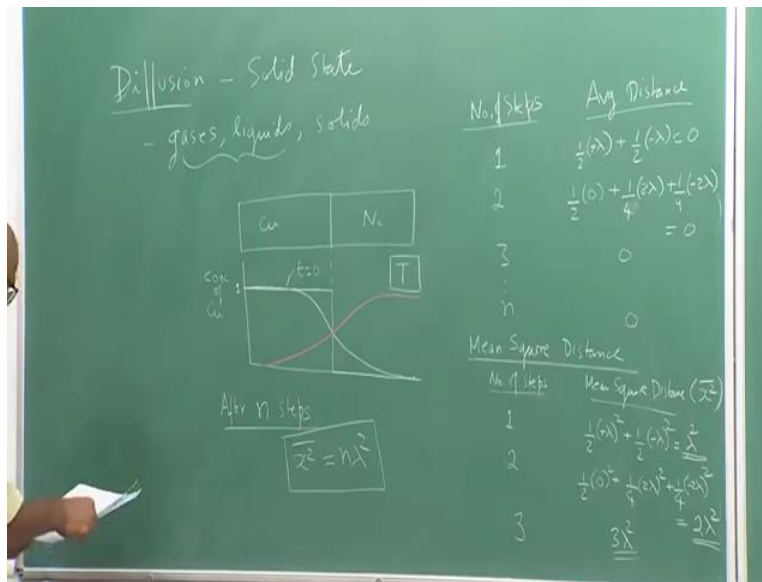 Diffusion - Solid State
- gases, liquids, solids
Cu Ni
Conc of Cu
1
t=0
T
After n steps
x̄² = nλ²
No. of Steps Avg Distance
1 ½(+λ) + ½(-λ) = 0
2 ½(0) + ¼(2λ) + ¼(-2λ)
= 0
3 0
⋮
n 0
Mean Square Distance
No. of Steps Mean Square Distance (x̄²)
1 ½(+λ)² + ½(-λ)² = λ²
2 ½(0)² + ¼(2λ)² + ¼(-2λ)²
= 2λ²
3 3λ²